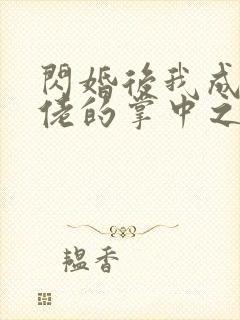 閃婚後我成
佬的掌中之
韞香